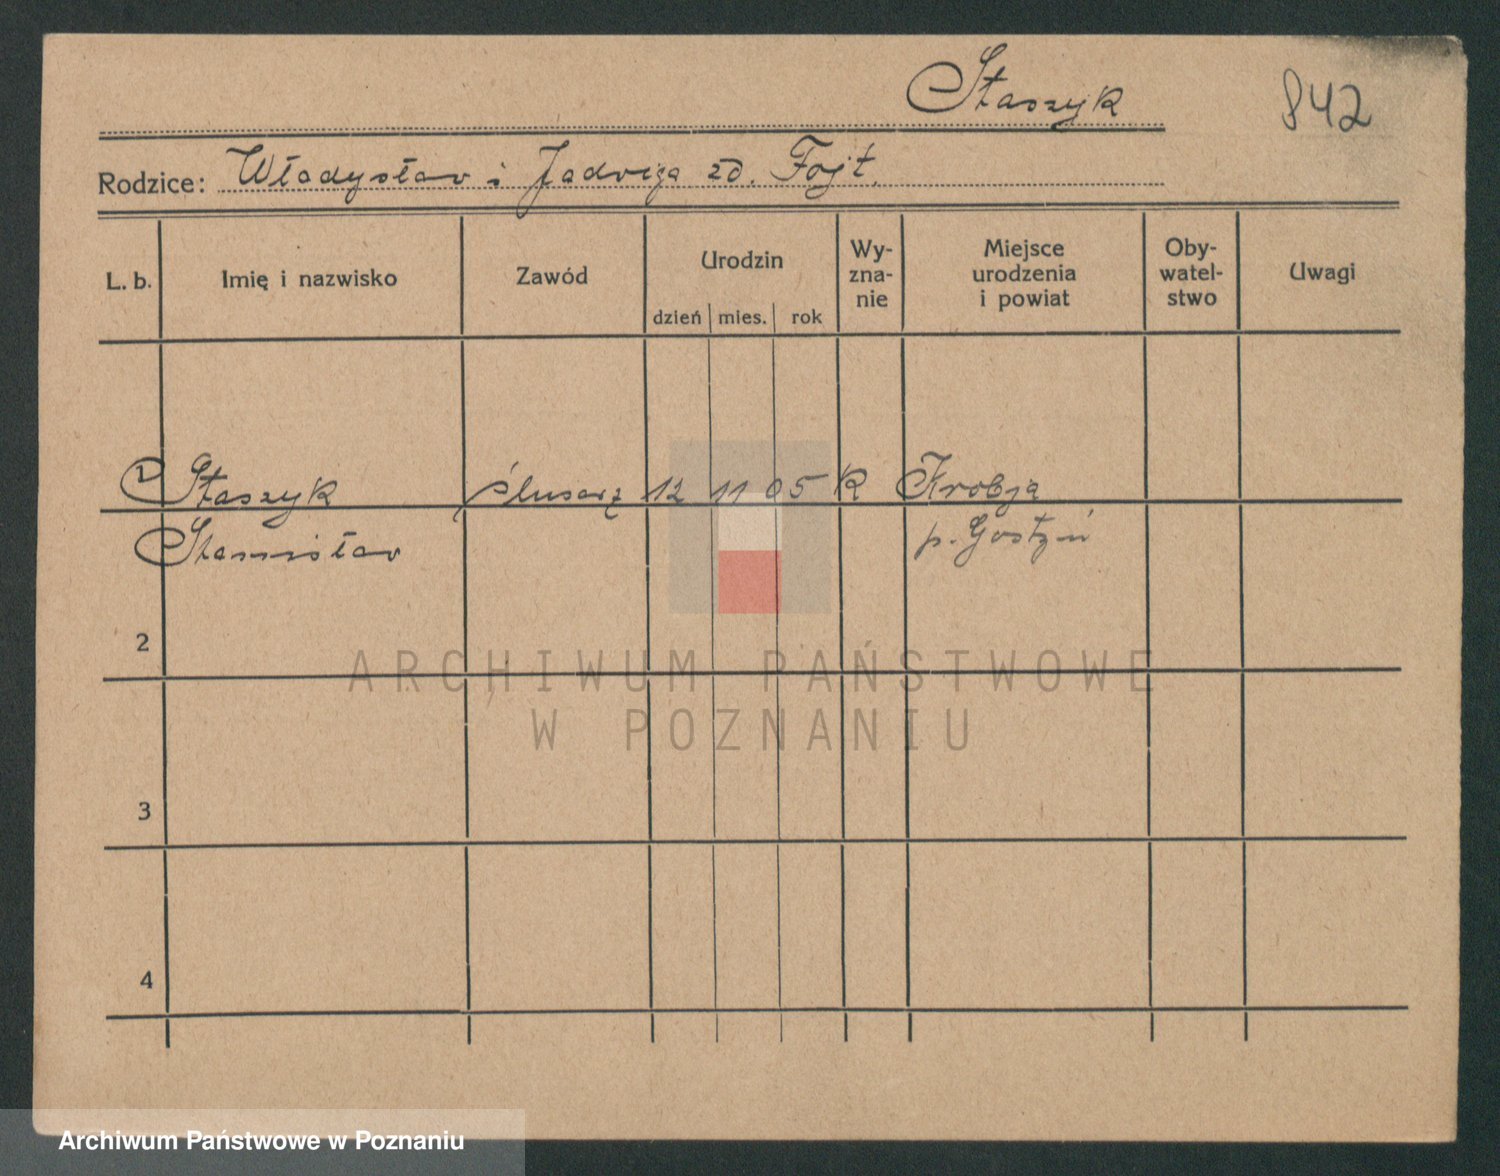 Staszyk
842
Rodzice: Władysław i Jadwiga zd. Fojt.
L. b. Imię i nazwisko Zawód Urodzin Wy-zna-nie Miejsce urodzenia i powiat Oby-watel-stwo Uwagi
dzień mies. rok
1 Staszyk ślusarz 12 11 05 K Krobja
Stanisław p. Gostyń
2
ARCHIWUM PAŃSTWOWE
W POZNANIU
3
4
Archiwum Państwowe w Poznaniu